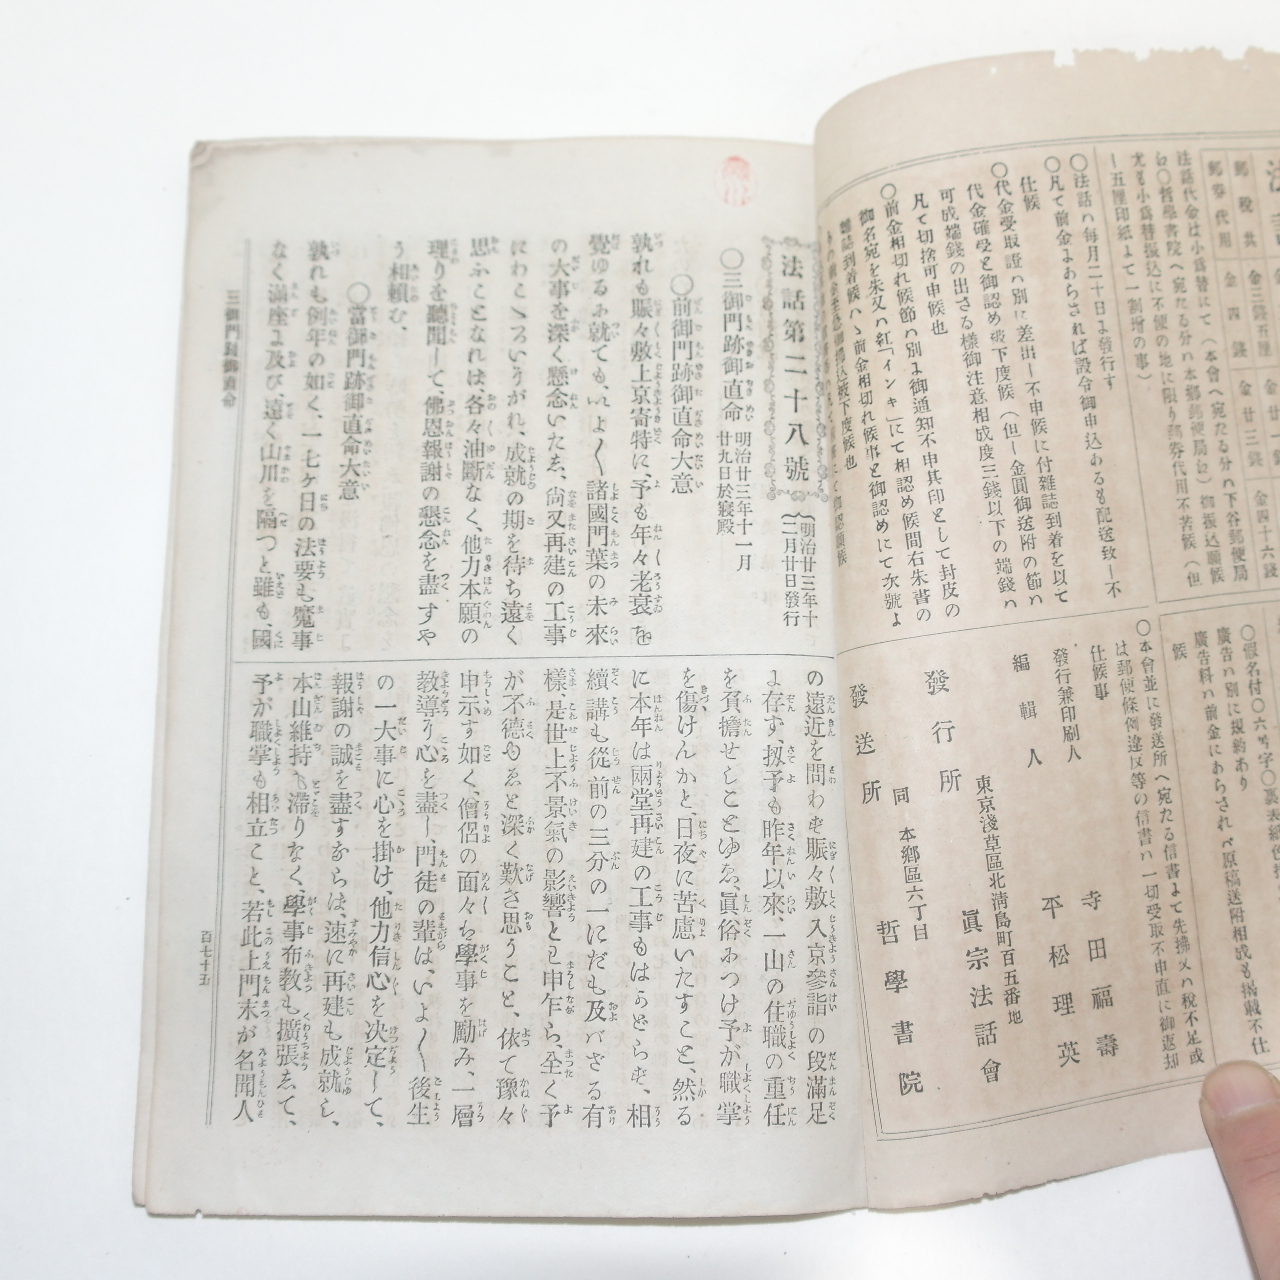 法話
郵税共 金三錢五厘 金廿三錢 金四十六錢
郵券代用 金四錢
法話代金は小爲替にて(本會へ宛たる分ハ下谷郵便局
哲學書院へ宛たる分ハ本郷郵便局)御振込願候
尤も小爲替振込に不便の地に限り郵券代用不苦候(但
五厘印紙よて一割增の事)
〇法話ハ每月二十日よ發行す
〇凡て前金よあらされば設令御申込あるも配送致し不
仕候
〇代金受取證ハ別に差出し不申候に付雜誌到着を以て
代金確受と御認め被下度候(但し金圓御送附の節ハ
可成端錢の出さる樣御注意相成度三錢以下の端錢ハ
凡て切捨可申候也
〇前金相切れ候節ハ別よ御通知不申其印として封皮の
御名宛を朱又ハ紅「インキ」にて相認め候間右朱書の
雜誌到着候ハヽ前金相切れ候事と御認めにて次號よ
〇假名付〇六号字〇
廣告ハ別に規約あり
廣告料ハ前金にあらされバ原稿送附相成も搭載不仕
候
〇本會並に發送所へ宛たる信書よて先拂又ハ稅不足或
は郵便條例違反等の信書ハ一切受取不申直に御返却
仕候事
發行兼印刷人 寺田福壽
編輯人 平松理英
東京淺草區北淸島町百五番地
發行所 眞宗法話會
同 本鄕區六丁目
發送所 哲學書院
法話第二十八號
明治廿三年十
二月廿日發行
〇三御門跡御直命
明治廿三年十一月
廿九日於寢殿
〇前御門跡御直命大意
孰れも賑々敷上京寄特に、予も年々老衰を
覺ゆるみ就ても、いよ〱諸國門葉の未來
の大事を深く懸念いたゑ、尙又再建の工事
にわこゝろいうがれ、成就の期を待ち遠く
思ふことなれは、各々油斷なく、他力本願の
理りを聽聞して、佛恩報謝の懇念を盡すや
う相賴む、
〇當御門跡御直命大意
孰れも例年の如く、一七ヶ日の法要も魔事
なく滿座よ及び、遠く山川を隔つと雖も、國
の遠近を問わず賑々敷入京參詣の段滿足
よ存ず、扨予も昨年以來、一山の住職の重任
を負擔せしことゆゑ、眞俗みつけ予が職掌
を傷けんかと、日夜に苦慮いたすこと、然る
に本年は兩堂再建の工事もはかどらず、相
續講も從前の三分の一にだも及バざる有
樣、是世上不景氣の影響とハ申乍ら、全く予
が不德のゑと深く歎き思うこと、依て豫々
申示す如く、僧侶の面々ハ學事を勵み、一層
敎導に心を盡し、門徒の輩は、いよ〱後生
の一大事に心を掛け、他力信心を決定して、
報謝の誠を盡すならは、速に再建も成就し、
本山維持も滯りなく、學事布敎も擴張ゑて、
予が職掌も相立こと、若此上門末が名聞人
三御門跡御直命
百七十五